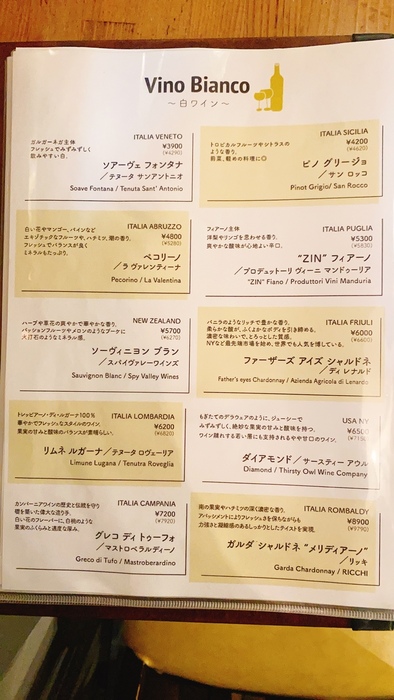 Vino Bianco
~白ワイン~
ITALIA VENETO
¥3900
(¥4290)
ガルガーネガ主体
フレッシュでみずみずしく
飲みやすい白。
ソアーヴェ フォンタナ
/テヌータ サンアントニオ
Soave Fontana / Tenuta Sant' Antonio
ITALIA SICILIA
¥4200
(¥4620)
トロピカルフルーツやシトラスの
ような香り。
前菜、軽めの料理に◎
ピノ グリージョ
/サン ロッコ
Pinot Grigio/ San Rocco
ITALIA ABRUZZO
¥4800
(¥5280)
白い花やマンゴー、パインなど
エキゾチックなフルーツや、ハチミツ、潮の香り。
フレッシュでバランスが良く
ミネラルもたっぷり。
ペコリーノ
/ラ ヴァレンティーナ
Pecorino / La Valentina
ITALIA PUGLIA
¥5300
(¥5830)
フィアーノ主体
洋梨やリンゴを思わせる香り。
爽やかな酸味が心地よい辛口。
"ZIN" フィアーノ
/プロデュットーリ ヴィーニ マンドゥーリア
"ZIN" Fiano / Produttori Vini Manduria
NEW ZEALAND
¥5700
(¥6270)
ハーブや草花の爽やかで華やかな香り。
パッションフルーツやメロンのようなブーケに
火打石のようなミネラル感。
ソーヴィニヨン ブラン
/スパイヴァレーワインズ
Sauvignon Blanc / Spy Valley Wines
ITALIA FRIULI
¥6000
(¥6600)
バニラのようなリッチで豊かな香り。
柔らかな酸が、ふくよかなボディを引き締める。
濃密な味わいで、とろっとした質感。
NYなど最先端市場を始め、世界でも人気を博している。
ファーザーズ アイズ シャルドネ
/ディ レナルド
Father's eyes Chardonnay / Azienda Agricola di Lenardo
ITALIA LOMBARDIA
¥6200
(¥6820)
トレッビアーノ・ディ・ルガーナ100%
華やかでフレッシュなスタイルのワイン。
果実の甘みと酸味のバランスが素晴らしい。
リムネ ルガーナ /テヌータ ロヴェーリア
Limune Lugana / Tenutra Roveglia
USA NY
¥6500
もぎたてのデラウェアのように、ジューシーで
みずみずしく、絶妙な果実の甘みと酸味を持つ。
ワイン慣れする若い層にも支持されるやや甘口のワイン。
ダイアモンド/サースティー アウル
Diamond / Thirsty Owl Wine Company
ITALIA CAMPANIA
¥7200
(¥7920)
カンパーニアワインの歴史と伝統を守り
礎を築いた偉大な造り手。
白い花のフレーバーに、白桃のような
果実のふくらみと適度な厚み。
グレコ ディ トゥーフォ
/マストロベラルディーノ
Greco di Tufo / Mastroberardino
ITALIA ROMBALDY
¥8900
(¥9790)
南の果実やハチミツの深く濃密な香り。
アパッシメントによりフレッシュさを保ちながらも
力強さと凝縮感のあるしっかりとしたテイストを実現。
ガルダ シャルドネ "メリディアーノ"
/リッキ
Garda Chardonnay / RICCHI